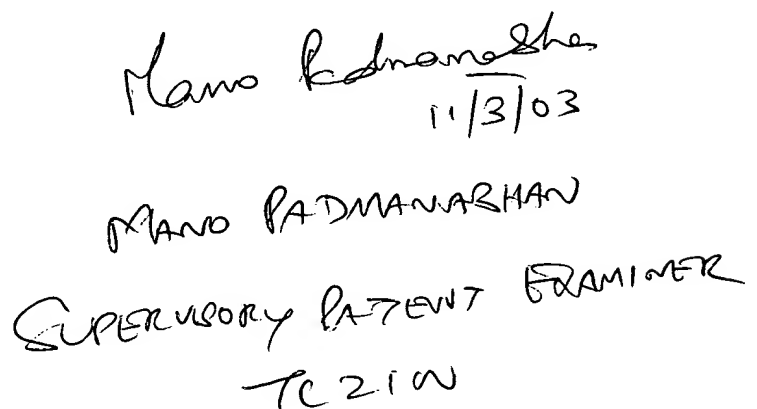 Mano Padmanabha
11/3/03
MANO PADMANABHAN
SUPERVISORY PATENT EXAMINER
TC 2100